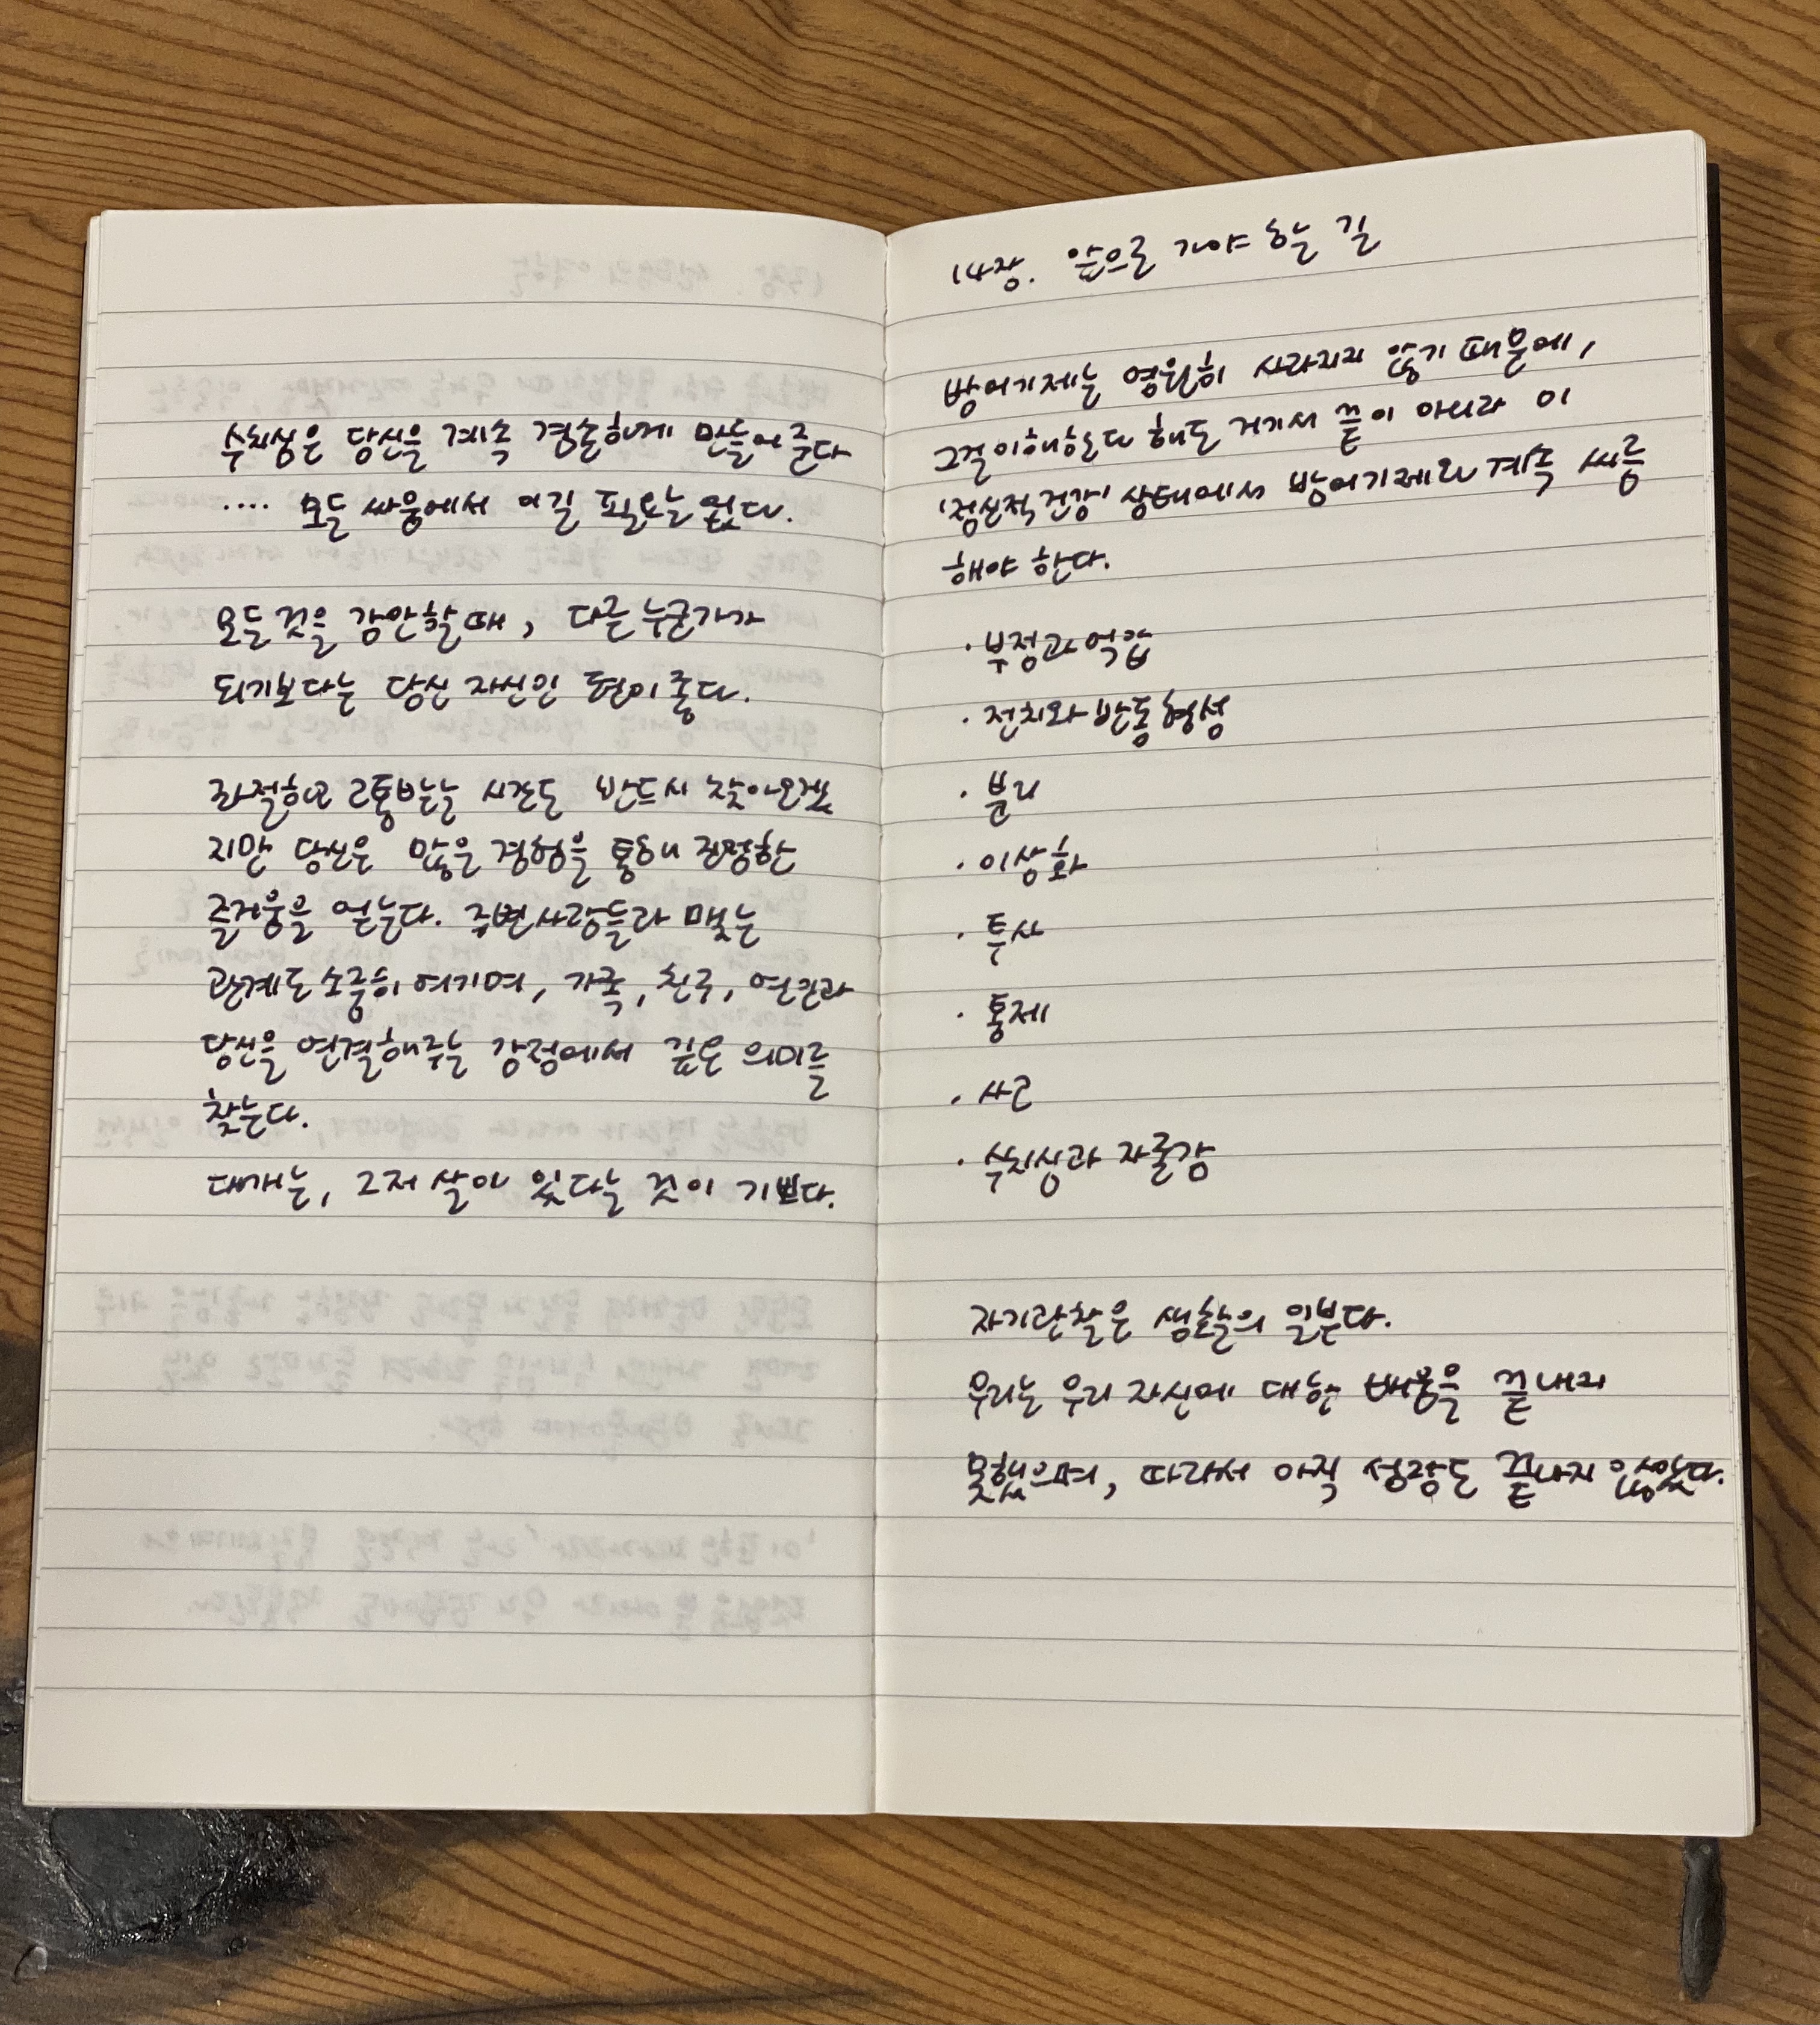 수치심은 당신을 계속 겸손하게 만들어 준다
.... 모든 싸움에서 이길 필요는 없다.
모든 것을 감안할 때, 다른 누군가가
되기보다는 당신 자신인 편이 좋다.
좌절하고 고통받는 시간도 반드시 찾아오겠
지만 당신은 많은 경험을 통해 진정한
즐거움을 얻는다. 주변 사람들과 맺는
관계도 소중히 여기며, 가족, 친구, 연인과
당신을 연결해주는 감정에서 깊은 의미를
찾는다.
대개는, 그저 살아 있다는 것이 기쁘다.
14장. 앞으로 가야 하는 길
방어기제는 영원히 사라지지 않기 때문에,
그걸 이해한다 해도 거기서 끝이 아니라 이
'정신적 건강' 상태에서 방어기제와 계속 씨름
해야 한다.
· 부정과 억압
· 전치와 반동형성
· 분리
· 이상화
· 투사
· 통제
· 사고
· 수치심과 자존감
자기관찰은 생활의 일부다.
우리는 우리 자신에 대한 배움을 끝내지
못했으며, 따라서 아직 성장도 끝나지 않았다.